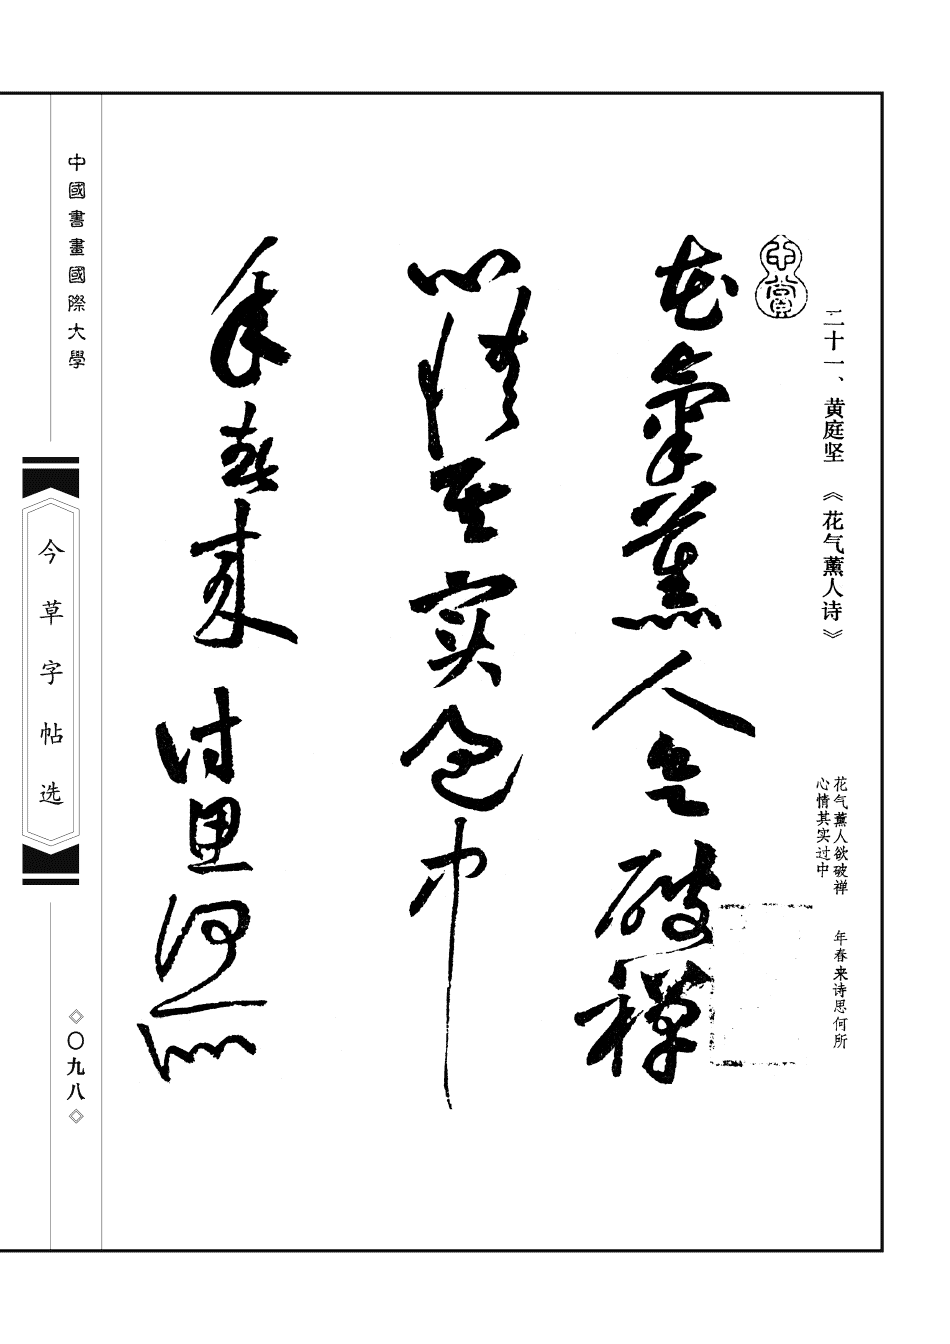 二十一、黄庭坚 《花气薰人诗》
花气薰人欲破禅
心情其实过中
年春来诗思何所
花氣薰人欲破禪
心情其实過中
年春来诗思何所
中國書畫國際大學
今草字帖选
◇〇九八◇